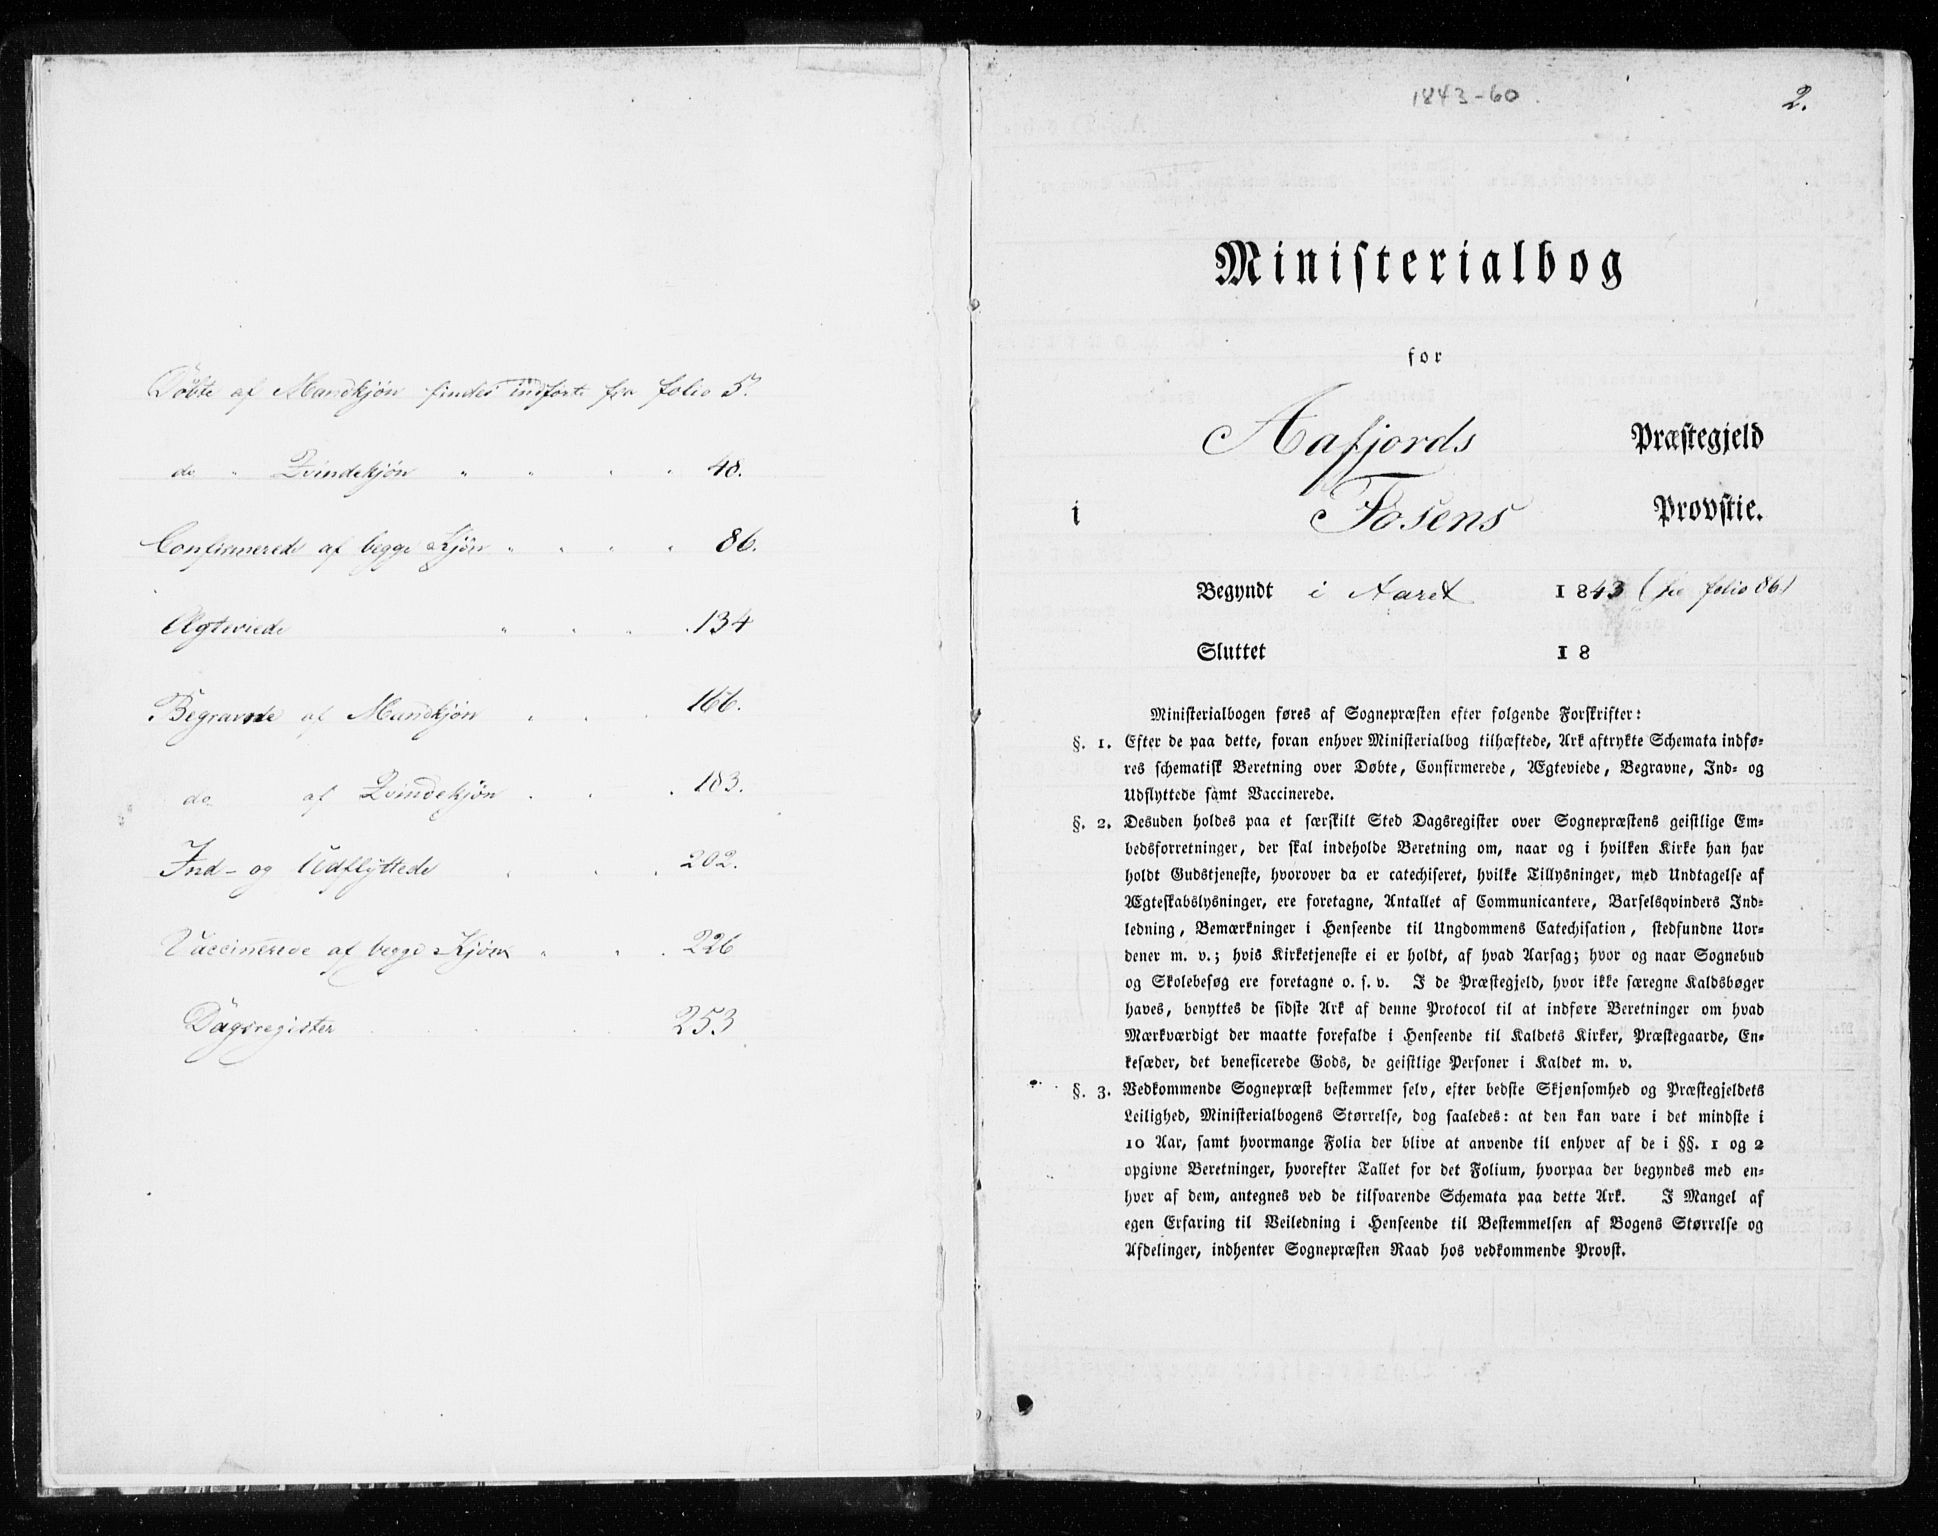 Döbte af Mandkjön findes indförte fra folio 5.
do " Qvindekjön " " " " 48.
Confirmerede af begge Kjön " " " " 86.
Ægteviede " " " . 134
Begravne af Mandkjön " . . 166.
do af Qvindekjön . . . 183.
Ind- og Udflyttede " " . 202.
Vaccinerede af begge Kjön " " . 226
Dagsregister . . . 253
1843-60.
2.
Ministerialbog
for
Aafjords Præstegjeld
i Fosens Provstie.
Begyndt i Aaret 1843 (See folio 86)
Sluttet 18
Ministerialbogen føres af Sognepræsten efter følgende Forskrifter:
§. 1. Efter de paa dette, foran enhver Ministerialbog tilhæftede, Ark aftrykte Schemata indfø-
res schematisk Beretning over Døbte, Confirmerede, Ægteviede, Begravne, Ind- og
Udflyttede samt Vaccinerede.
§. 2. Desuden holdes paa et særskilt Sted Dagsregister over Sognepræstens geistlige Em-
bedsforretninger, der skal indeholde Beretning om, naar og i hvilken Kirke han har
holdt Gudstjeneste, hvorover da er catechiseret, hvilke Tillysninger, med Undtagelse af
Ægteskabslysninger, ere foretagne, Antallet af Communicantere, Barselqvinders Ind-
ledning, Bemærkninger i Henseende til Ungdommens Catechisation, stedfundne Uor-
dener m. v.; hvis Kirketjeneste ei er holdt, af hvad Aarsag; hvor og naar Sognebud
og Skolebesøg ere foretagne o. s. v. I de Præstegjeld, hvor ikke særegne Kaldsbøger
haves, benyttes de sidste Ark af denne Protocol til at indføre Beretninger om hvad
Mærkværdigt der maatte forefalde i Henseende til Kaldets Kirker, Præstegaarde, En-
kesæder, det beneficerede Gods, de geistlige Personer i Kaldet m. v.
§. 3. Vedkommende Sognepræst bestemmer selv, efter bedste Skjønsomhed og Præstegjeldets
Leilighed, Ministerialbogens Størrelse, dog saaledes: at den kan vare i det mindste i
10 Aar, samt hvormange Folia der blive at anvende til enhver af de i §§. 1 og 2
opgivne Beretninger, hvorefter Tallet for det Folium, hvorpaa der begyndes med en-
hver af dem, antegnes ved de tilsvarende Schemata paa dette Ark. I Mangel af
egen Erfaring til Veiledning i Henseende til Bestemmelsen af Bogens Størrelse og
Afdelinger, indhenter Sognepræsten Raad hos vedkommende Provst.